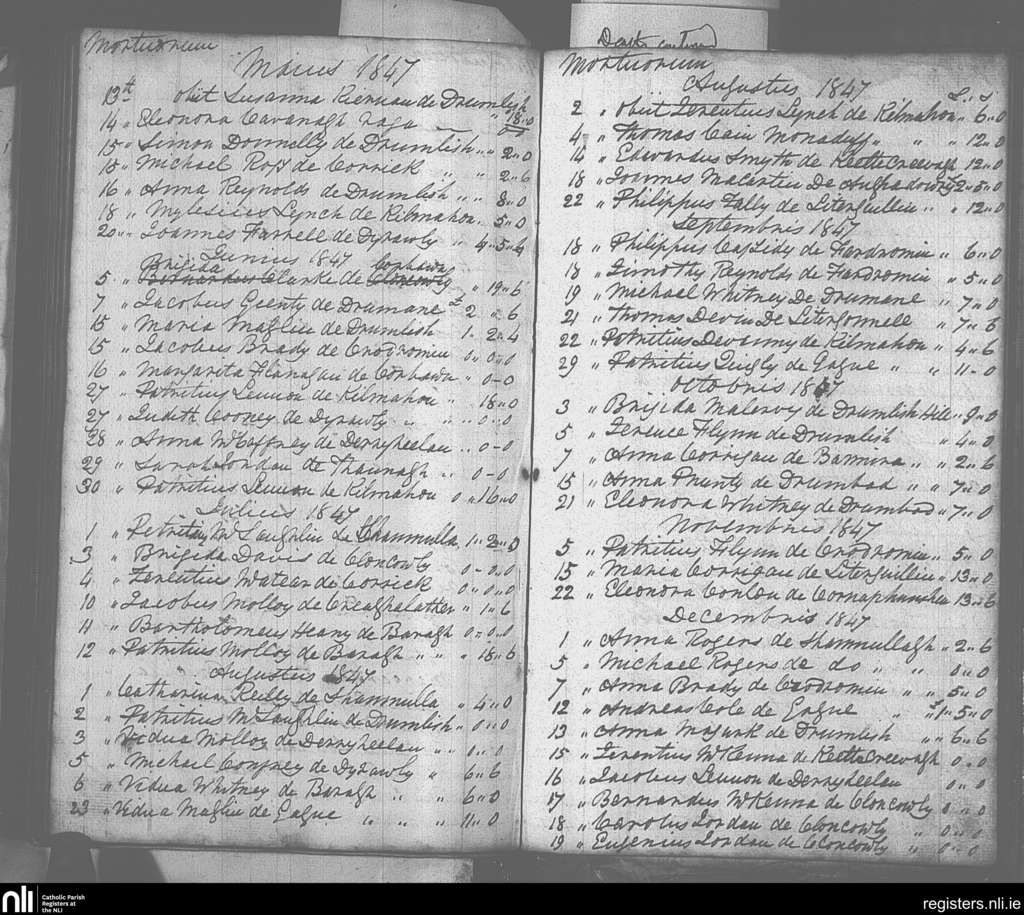 Mortuorum
Maius 1847
13th obiit Susanna Kiernan de Drumlish " 18 " 0
14 " Eleonora Cavanagh vaga — 0-0
15 " Simon Donnelly de Drumlish " " 2 " 0
15 " Michael Ross de Corrick " " 2 " 6
16 " Anna Reynolds de Drumlish " " 8 " 0
18 " Mylesius Lynch de Kilmahon " 5 " 0
20 " Joannes Farrell de Dyrawly " 4 " 5 " 4
Junius 1847
Brigida Corbawn
5 " Bernardus Clarke de Cloncowly " 19 " 6
7 " Jacobus Geenty de Drumane £ 2 " 6
15 " Maria Maglin de Drumlish 1 " 2 " 4
15 " Jacobus Brady de Crodromin 0 " 0 " 0
16 " Margarita Flanagan de Corbawn " 0-0
27 " Patritius Lennon de Kilmahon " 18 " 0
27 " Judith Cooney de Dyrawly " " " 0 " 0
28 " Anna McCaffrey de Derryheelan " " 0-0
29 " Sarah Jordan de Thaunagh " " 0-0
30 " Patritius Lennon de Kilmahon 0 " 16 " 0
Julius 1847
1 " Patritius McLaughlin de Shanmulla 1 " 2 " 0
3 " Brigida Davis de Cloncowly 0-0 " 0
4 " Terentius Waters de Corrick 0 " 0 " 0
10 " Jacobus Molloy de Creaghalather " 1 " 6
11 " Bartholomeus Heany de Baragh 0 " 0 " 0
12 " Patritius Molloy de Baragh " " " 18 " 6
Augustus 1847
1 " Catharina Reilly de Shanmulla " 4 " 0
2 " Patritius McLaughlin de Drumlish " 0 " 0
3 " Vidua Molloy de Derryheelan " " 0 " 0
5 " Michael Comfrey de Dyrawly " 6 " 6
6 " Vidua Whitney de Baragh " " 6 " 0
23 " Vidua Maglin de Gague " " " 11 " 0
Deaths continued
Mortuorum
Augustus 1847
2 " obiit Terentius Lynch de Kilmahon " 6 " 0
4 " Thomas Cain Monaduff " " " 12 " 0
14 " Edwardus Smyth de Keeltecreevagh 12 " 0
18 " Joannes Macartin De Aughadowry 2 " 5 " 0
22 " Philippus Fally de Literguillin " " 12 " 0
Septembris 1847
18 " Philippus Cassidy de Fardromin " 6 " 0
18 " Timothy Reynolds de Fardromin " 5 " 0
19 " Michael Whitney De Drumane " 7 " 0
21 " Thomas Devin De Litergonnell " 7 " 6
22 " Patritius Devanny de Kilmahon " 4 " 6
29 " Patritius Quigly de Gague " " 11-0
Octobris 1847
3 " Brigida Malervy de Drumlish Hill " 9 " 0
5 " Terence Flynn de Drumlish " 4 " 0
7 " Anna Corrigan de Barnira " " 2 " 6
15 " Anna Prunty de Drumbad " " 7 " 0
21 " Eleonora Whitney de Drumbad " 7 " 0
Novembris 1847
5 " Patritius Flynn de Crodromin " 5 " 0
15 " Maria Corrigan de Literguillin " 13 " 0
22 " Eleonora Conlon de 13 " 6
Decembris 1847
1 " Anna Rogers de Shanmullagh " 2 " 6
5 " Michael Rogers de do " " 0 " 0
7 " Anna Brady de Crodromin " " 5 " 0
12 " Andreas Cole de Gague " £1 " 5 " 0
13 " Anna Magurk de Drumlish " " 6 " 6
15 " Terentius McKenna de Keeltecreevagh 0 " 0
16 " Jacobus Lennon de Derryheelan 0 " 0
17 " Bernardus McKenna de Cloncowly 0 " 0
18 " Carolus Jordan de Cloncowly " 0 " 0
19 " Eugenius Jordan de Cloncowly " 0 " 0
nli Catholic Parish Registers at the NLI
registers.nli.ie